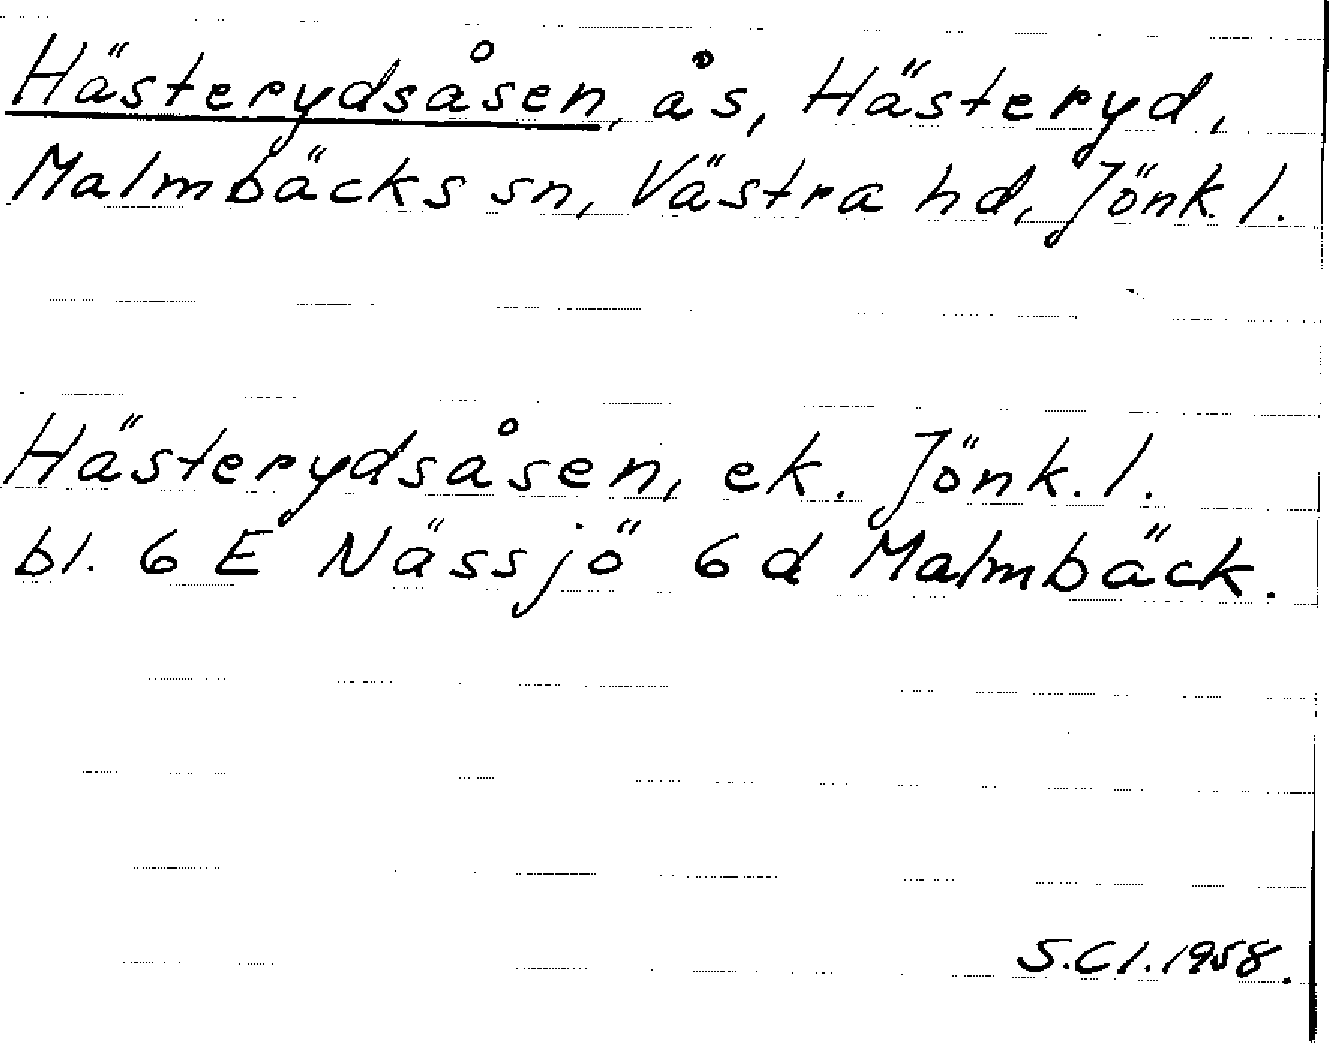 Hästerydsåsen, ås, Hästeryd,
Malmbäcks sn, Västra hd, Jönk. l.
Hästerydsåsen, ek. Jönk. l.
bl. 6 E Nässjö 6 d Malmbäck.
S.Cl. 1958.